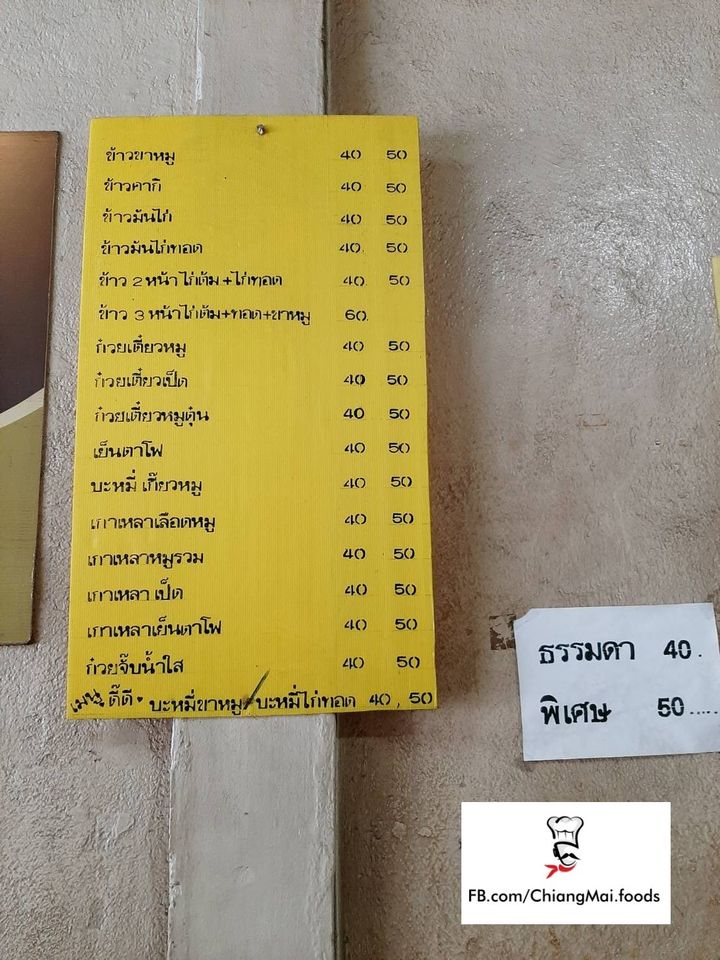 ข้าวขาหมู 40 50
ข้าวคากิ 40 50
ข้าวมันไก่ 40 50
ข้าวมันไก่ทอด 40. 50
ข้าว 2 หน้า ไก่ต้ม+ไก่ทอด 40. 50
ข้าว 3 หน้าไก่ต้ม+ทอด+ขาหมู 60.
ก๋วยเตี๋ยวหมู 40 50
ก๋วยเตี๋ยวเป็ด 40 50
ก๋วยเตี๋ยวหมูตุ๋น 40 50
เย็นตาโฟ 40 50
บะหมี่ เกี๊ยวหมู 40 50
เกาเหลาเลือดหมู 40 50
เกาเหลาหมูรวม 40 50
เกาเหลา เป็ด 40 50
เกาเหลาเย็นตาโฟ 40 50
ก๋วยจั๊บน้ำใส 40 50
เมนู ดี๊ดี. บะหมี่ขาหมู/บะหมี่ไก่ทอด 40, 50
ธรรมดา 40.
พิเศษ 50.....
FB.com/ChiangMai.foods